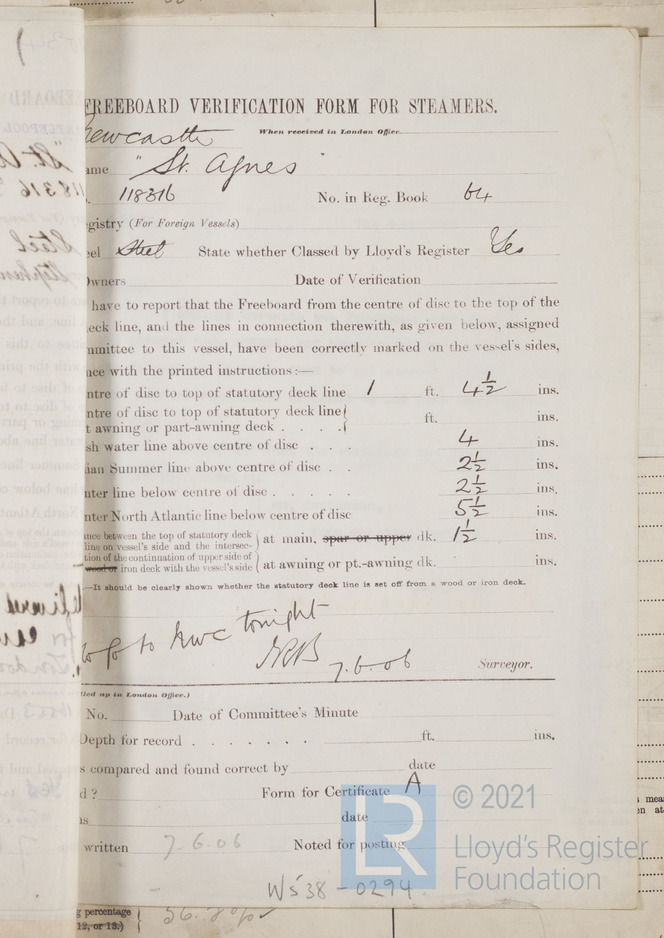 FREEBOARD VERIFICATION FORM FOR STEAMERS.
Newcastle When received in London Office
ame "St. Agnes"
118316 No. in Reg. Book 64
gistry (For Foreign Vessels)
eel Steel State whether Classed by Lloyd's Register Yes
Owners Date of Verification
have to report that the Freeboard from the centre of disc to the top of the
eck line, and the lines in connection therewith, as given below, assigned
mmittee to this vessel, have been correctly marked on the vessel's sides,
nce with the printed instructions :—
ntre of disc to top of statutory deck line 1 ft. 4½ ins.
ntre of disc to top of statutory deck line
t awning or part-awning deck . . . . ft. ins.
sh water line above centre of disc . . . 4 ins.
ian Summer line above centre of disc . . 2½ ins.
nter line below centre of disc . . . . . 2½ ins.
nter North Atlantic line below centre of disc 5½ ins.
nce between the top of statutory deck
line on vessel's side and the intersec-
tion of the continuation of upper side of
wood or iron deck with the vessel's side
at main, spar or upper dk. 1½ ins.
at awning or pt.-awning dk. ins.
—It should be clearly shown whether the statutory deck line is set off from a wood or iron deck.
to NWC tonight
7.6.06 Surveyor.
led up in London Office.)
No. Date of Committee's Minute
Depth for record . . . . . . . ft. ins.
s compared and found correct by date
d ? Form for Certificate A
as date
written 7.6.06 Noted for posting
W538-0294
© 2021
LR
Lloyd's Register
Foundation
g percentage
12, or 13.)